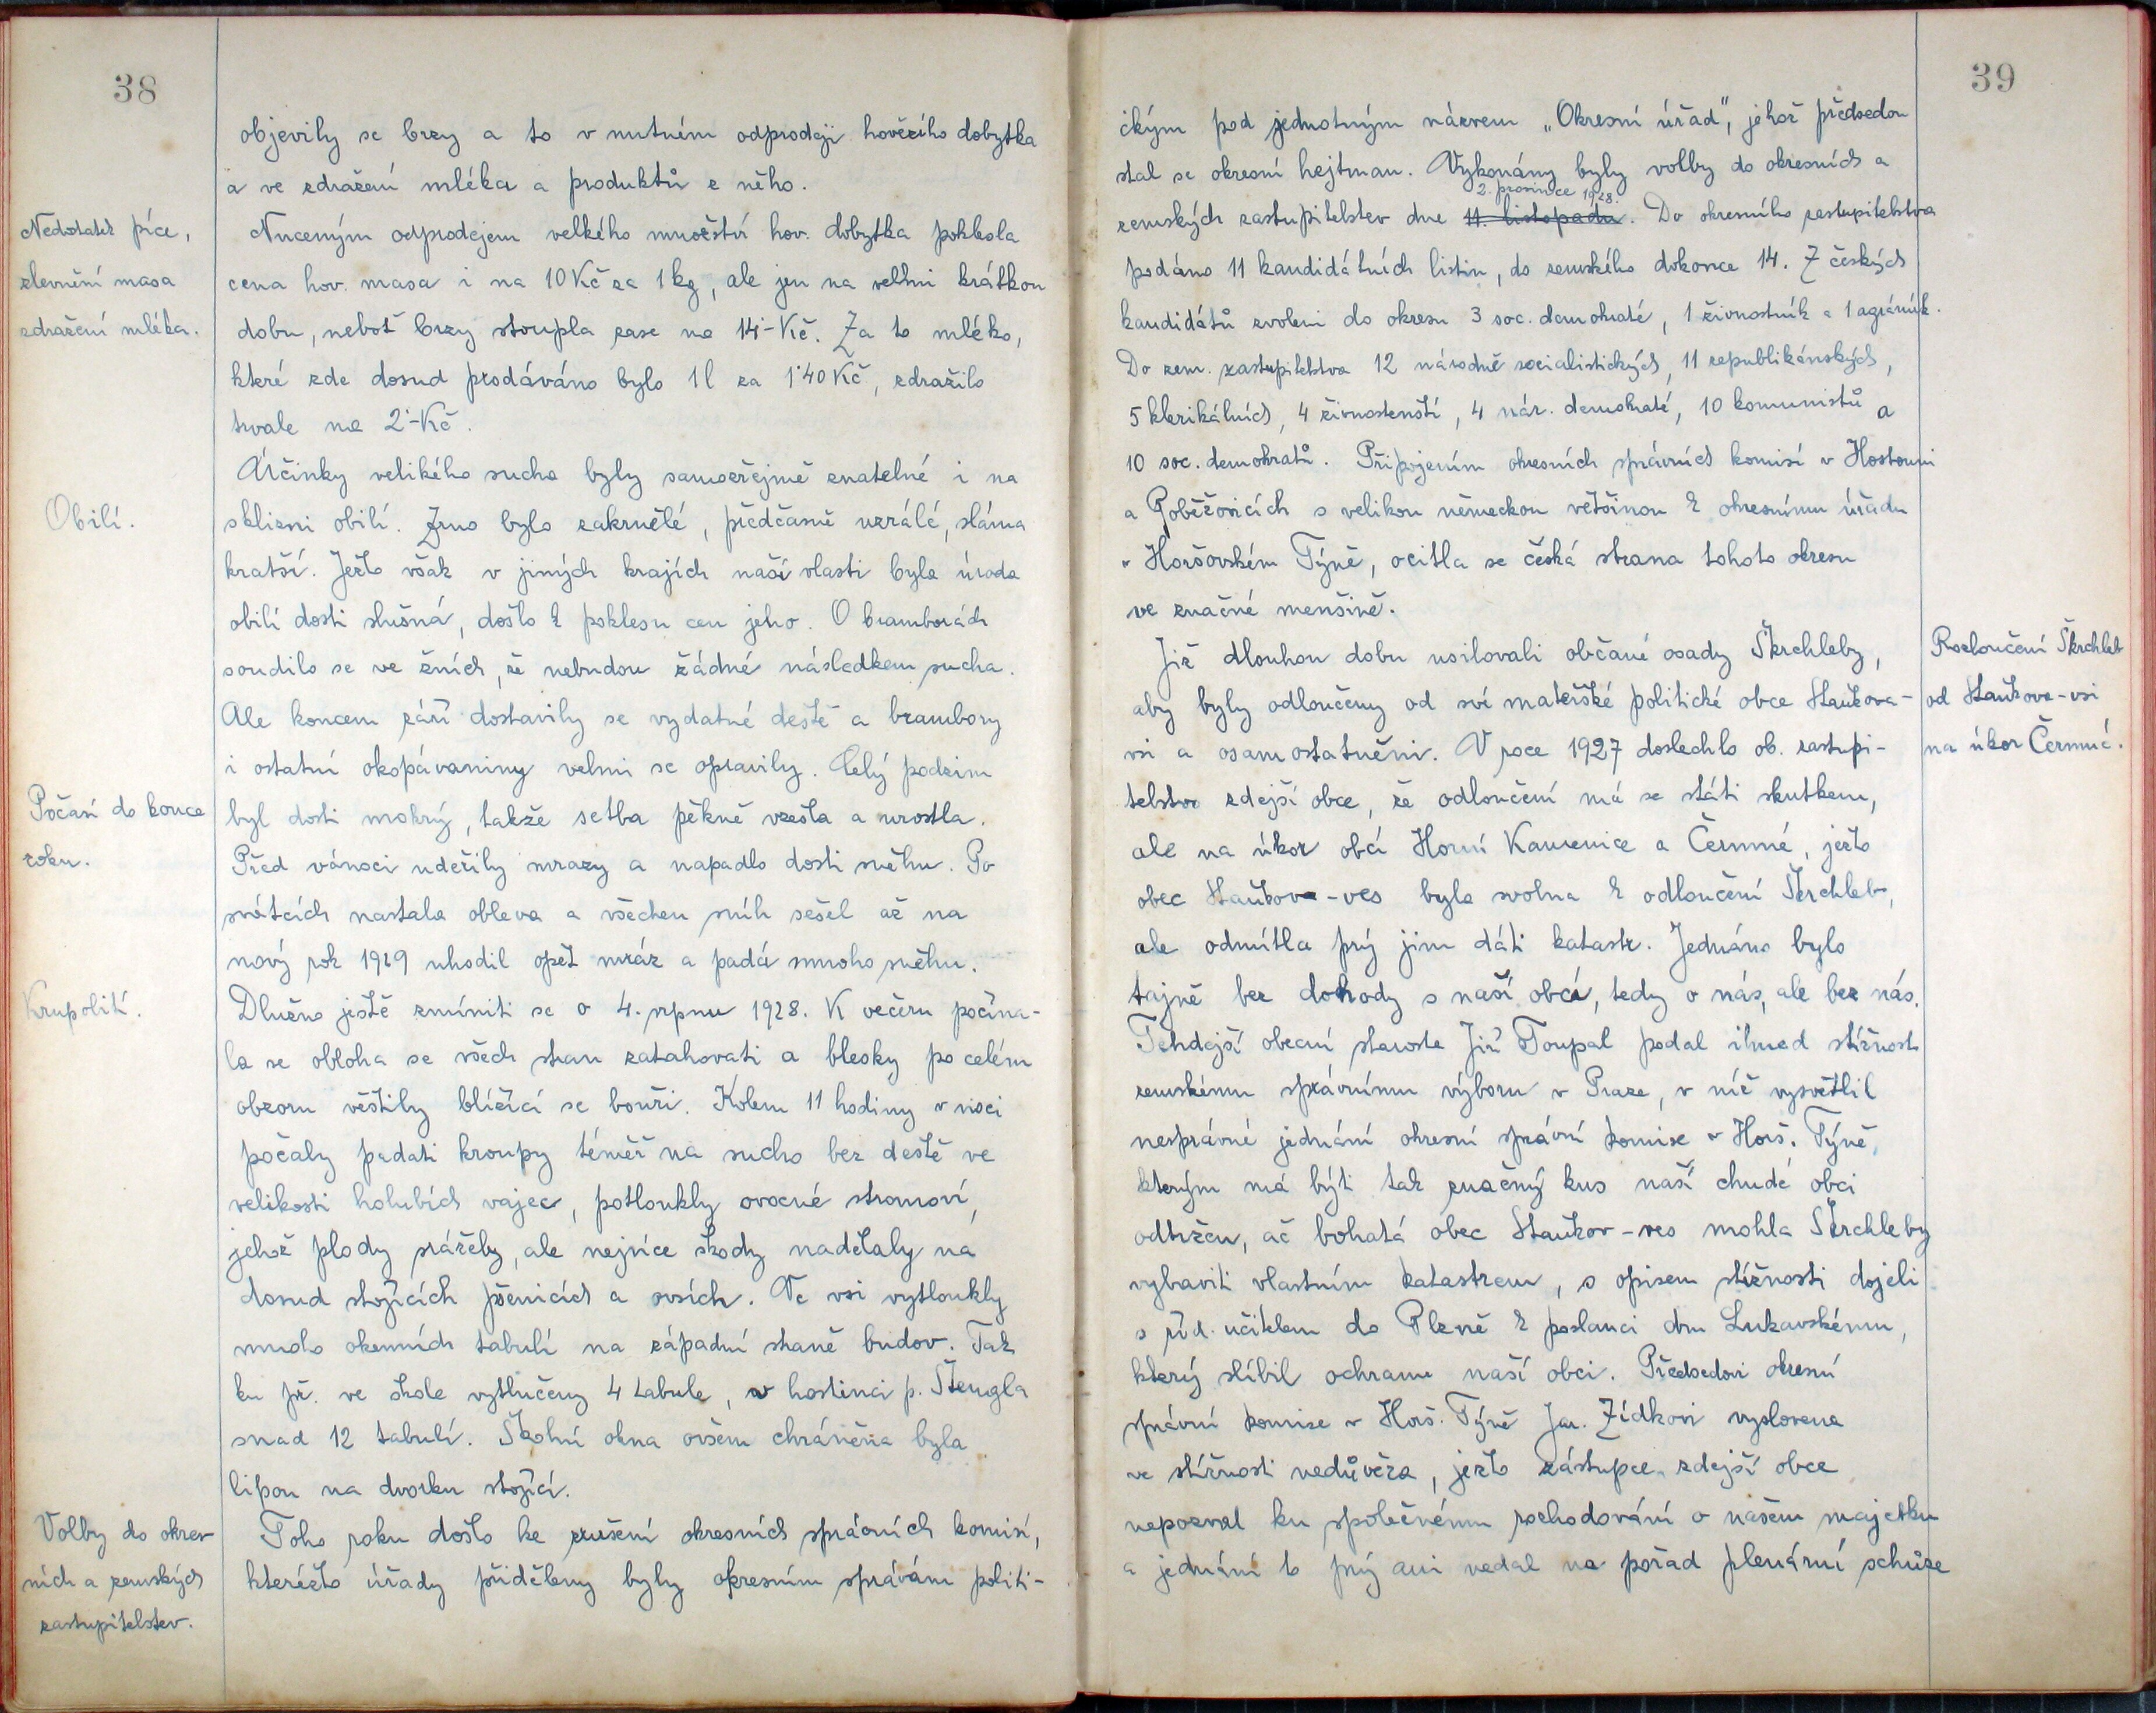 38
objevily se brzy a to v nutném odprodeji hovězího dobytka
a ve zdražení mléka a produktů z něho.
Nedostatek píce,
zlevnění masa
zdražení mléka.
Nuceným odprodejem velkého množství hov. dobytka poklesla
cena hov. masa i na 10 Kč za 1 kg, ale jen na velmi krátkou
dobu, neboť brzy stoupla zase na 14·- Kč. Za to mléko,
které zde dosud prodáváno bylo 1 l za 1·40 Kč, zdražilo
trvale na 2·- Kč.
Obilí.
Účinky velikého sucha byly samozřejmě znatelné i na
sklizni obilí. Zrno bylo zakrnělé, předčasně uzrálé, sláma
kratší. Ježto však v jiných krajích naší vlasti byla úroda
obilí dosti slušná, došlo k poklesu cen jeho. O bramborách
soudilo se ve žních, že nebudou žádné následkem sucha.
Ale koncem září dostavily se vydatné deště a brambory
i ostatní okopávaniny velmi se opravily. Celý podzim
Počasí do konce
roku.
byl dosti mokrý, takže setba pěkně vzešla a urostla.
Před vánoci udeřily mrazy a napadlo dosti sněhu. Po
svátcích nastala obleva a všechen sníh sešel až na
nový rok 1929 uhodil opět mráz a padá mnoho sněhu.
Krupobití.
Dlužno ještě zmíniti se o 4. srpnu 1928. K večeru počína-
la se obloha se všech stran zatahovati a blesky po celém
obzoru věštily blížící se bouři. Kolem 11 hodiny v noci
počaly padati kroupy téměř na sucho bez deště ve
velikosti holubích vajec, potloukly ovocné stromoví,
jehož plody srážely, ale nejvíce škody nadělaly na
dosud stojících pšenicích a ovsích. Ve vsi vytloukly
mnoho okenních tabulí na západní straně budov. Tak
ku př. ve škole vytlučeny 4 tabule, v hostinci p. Štengla
snad 12 tabulí. Školní okna ovšem chráněna byla
lipou na dvorku stojící.
Volby do okres-
ních a zemských
zastupitelstev.
Toho roku došlo ke zrušení okresních správních komisí,
kteréžto úřady přiděleny byly okresním správám politi-
39
ckým pod jednotným názvem „Okresní úřad", jehož předsedou
stal se okresní hejtman. Vykonány byly volby do okresních a
2. prosince 1928.
zemských zastupitelstev dne 11. listopadu. Do okresního zastupitelstva
podáno 11 kandidátních listin, do zemského dokonce 14. Z českých
kandidátů zvoleni do okresu 3 soc. demokraté, 1 živnostník a 1 agrárník.
Do zem. zastupitelstva 12 národně socialistických, 11 republikánských,
5 klerikálních, 4 živnostenští, 4 nár. demokraté, 10 komunistů a
10 soc. demokratů. Připojením okresních správních komisí v Hostouni
a Poběžovicích s velikou německou většinou k okresnímu úřadu
v Horšovském Týně, ocitla se česká strana tohoto okresu
ve značné menšině.
Rozloučení Škrchleb
od Staňkova-vsi
na úkor Čermné.
Již dlouhou dobu usilovali občané osady Škrchleby,
aby byly odloučeny od své mateřské politické obce Staňkova-
vsi a osamostatněni. V roce 1927 doslechlo ob. zastupi-
telstvo zdejší obce, že odloučení má se státi skutkem,
ale na úkor obcí Horní Kamenice a Čermné, ježto
obec Staňkova-ves byla svolna k odloučení Škrchleb,
ale odmítla prý jim dáti katastr. Jednáno bylo
tajně bez dohody s naší obcí, tedy o nás, ale bez nás.
Tehdejší obecní starosta Jiří Toupal podal ihned stížnost
zemskému správnímu výboru v Praze, v níž vysvětlil
nesprávné jednání okresní správní komise v Horš. Týně,
kterým má býti tak značný kus naší chudé obci
odtržen, ač bohatá obec Staňkov-ves mohla Škrchleby
vybaviti vlastním katastrem, s opisem stížnosti dojeli
s říd. učitelem do Plzně k poslanci dru Lukavskému,
který slíbil ochranu naší obci. Předsedovi okresní
správní komise v Horš. Týně Jar. Zídkovi vyslovena
ve stížnosti nedůvěra, ježto zástupce zdejší obce
nepozval ku společnému rozhodování o našem majetku
a jednání to prý ani nedal na pořad plenární schůze